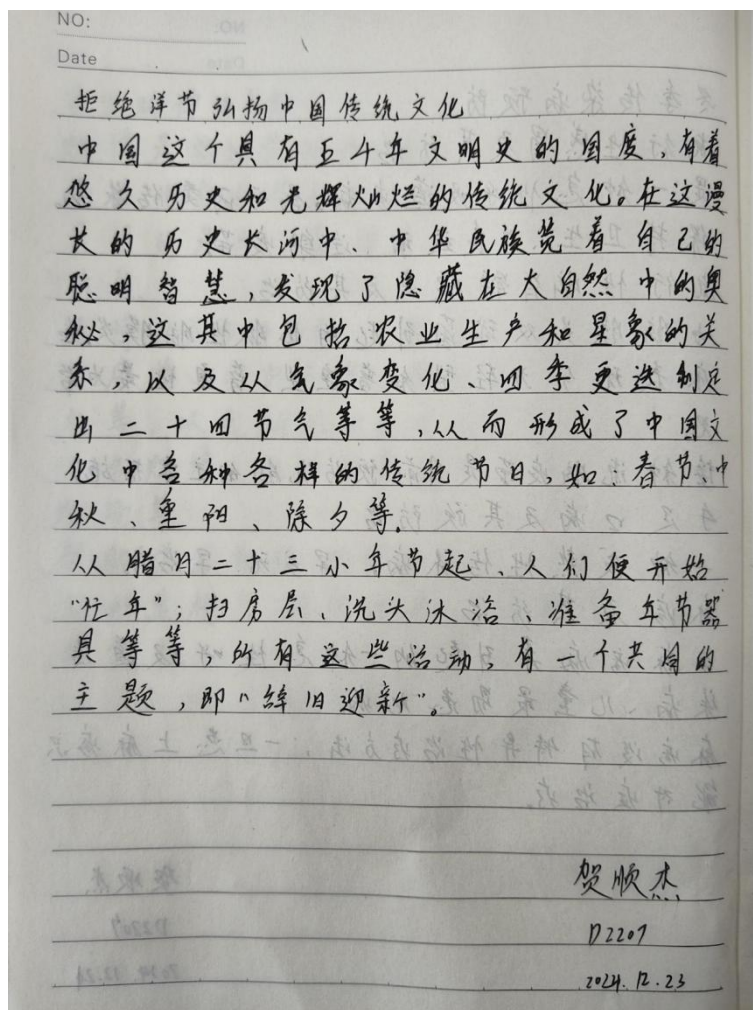 NO:
Date
拒绝洋节弘扬中国传统文化
中国这个具有五千年文明史的国度,有着
悠久历史和光辉灿烂的传统文化。在这漫
长的历史长河中、中华民族凭着自己的
聪明智慧,发现了隐藏在大自然中的奥
秘,这其中包括农业生产和星象的关
系,以及从气象变化、四季更迭制定
出二十四节气等等,从而形成了中国文
化中各种各样的传统节日,如:春节、中
秋、重阳、除夕等.
从腊月二十三小年节起、人们便开始
“忙年”;扫房屋、洗头沐浴、准备年节器
具等等,所有这些活动,有一个共同的
主题,即“辞旧迎新”。
贺顺杰
D2207
2024.12.23